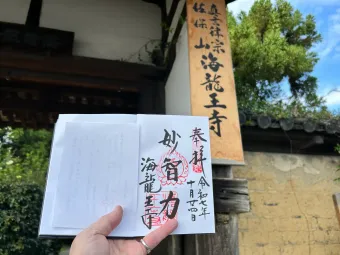 真言律宗
佐保山海龍王寺
奉拝
妙智力
海龍王寺
令和七年
十月廿四日